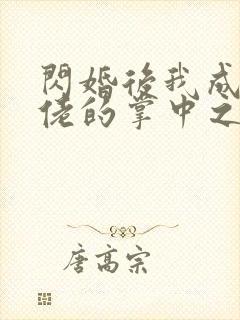 閃婚後我成
佬的掌中之
唐高宗